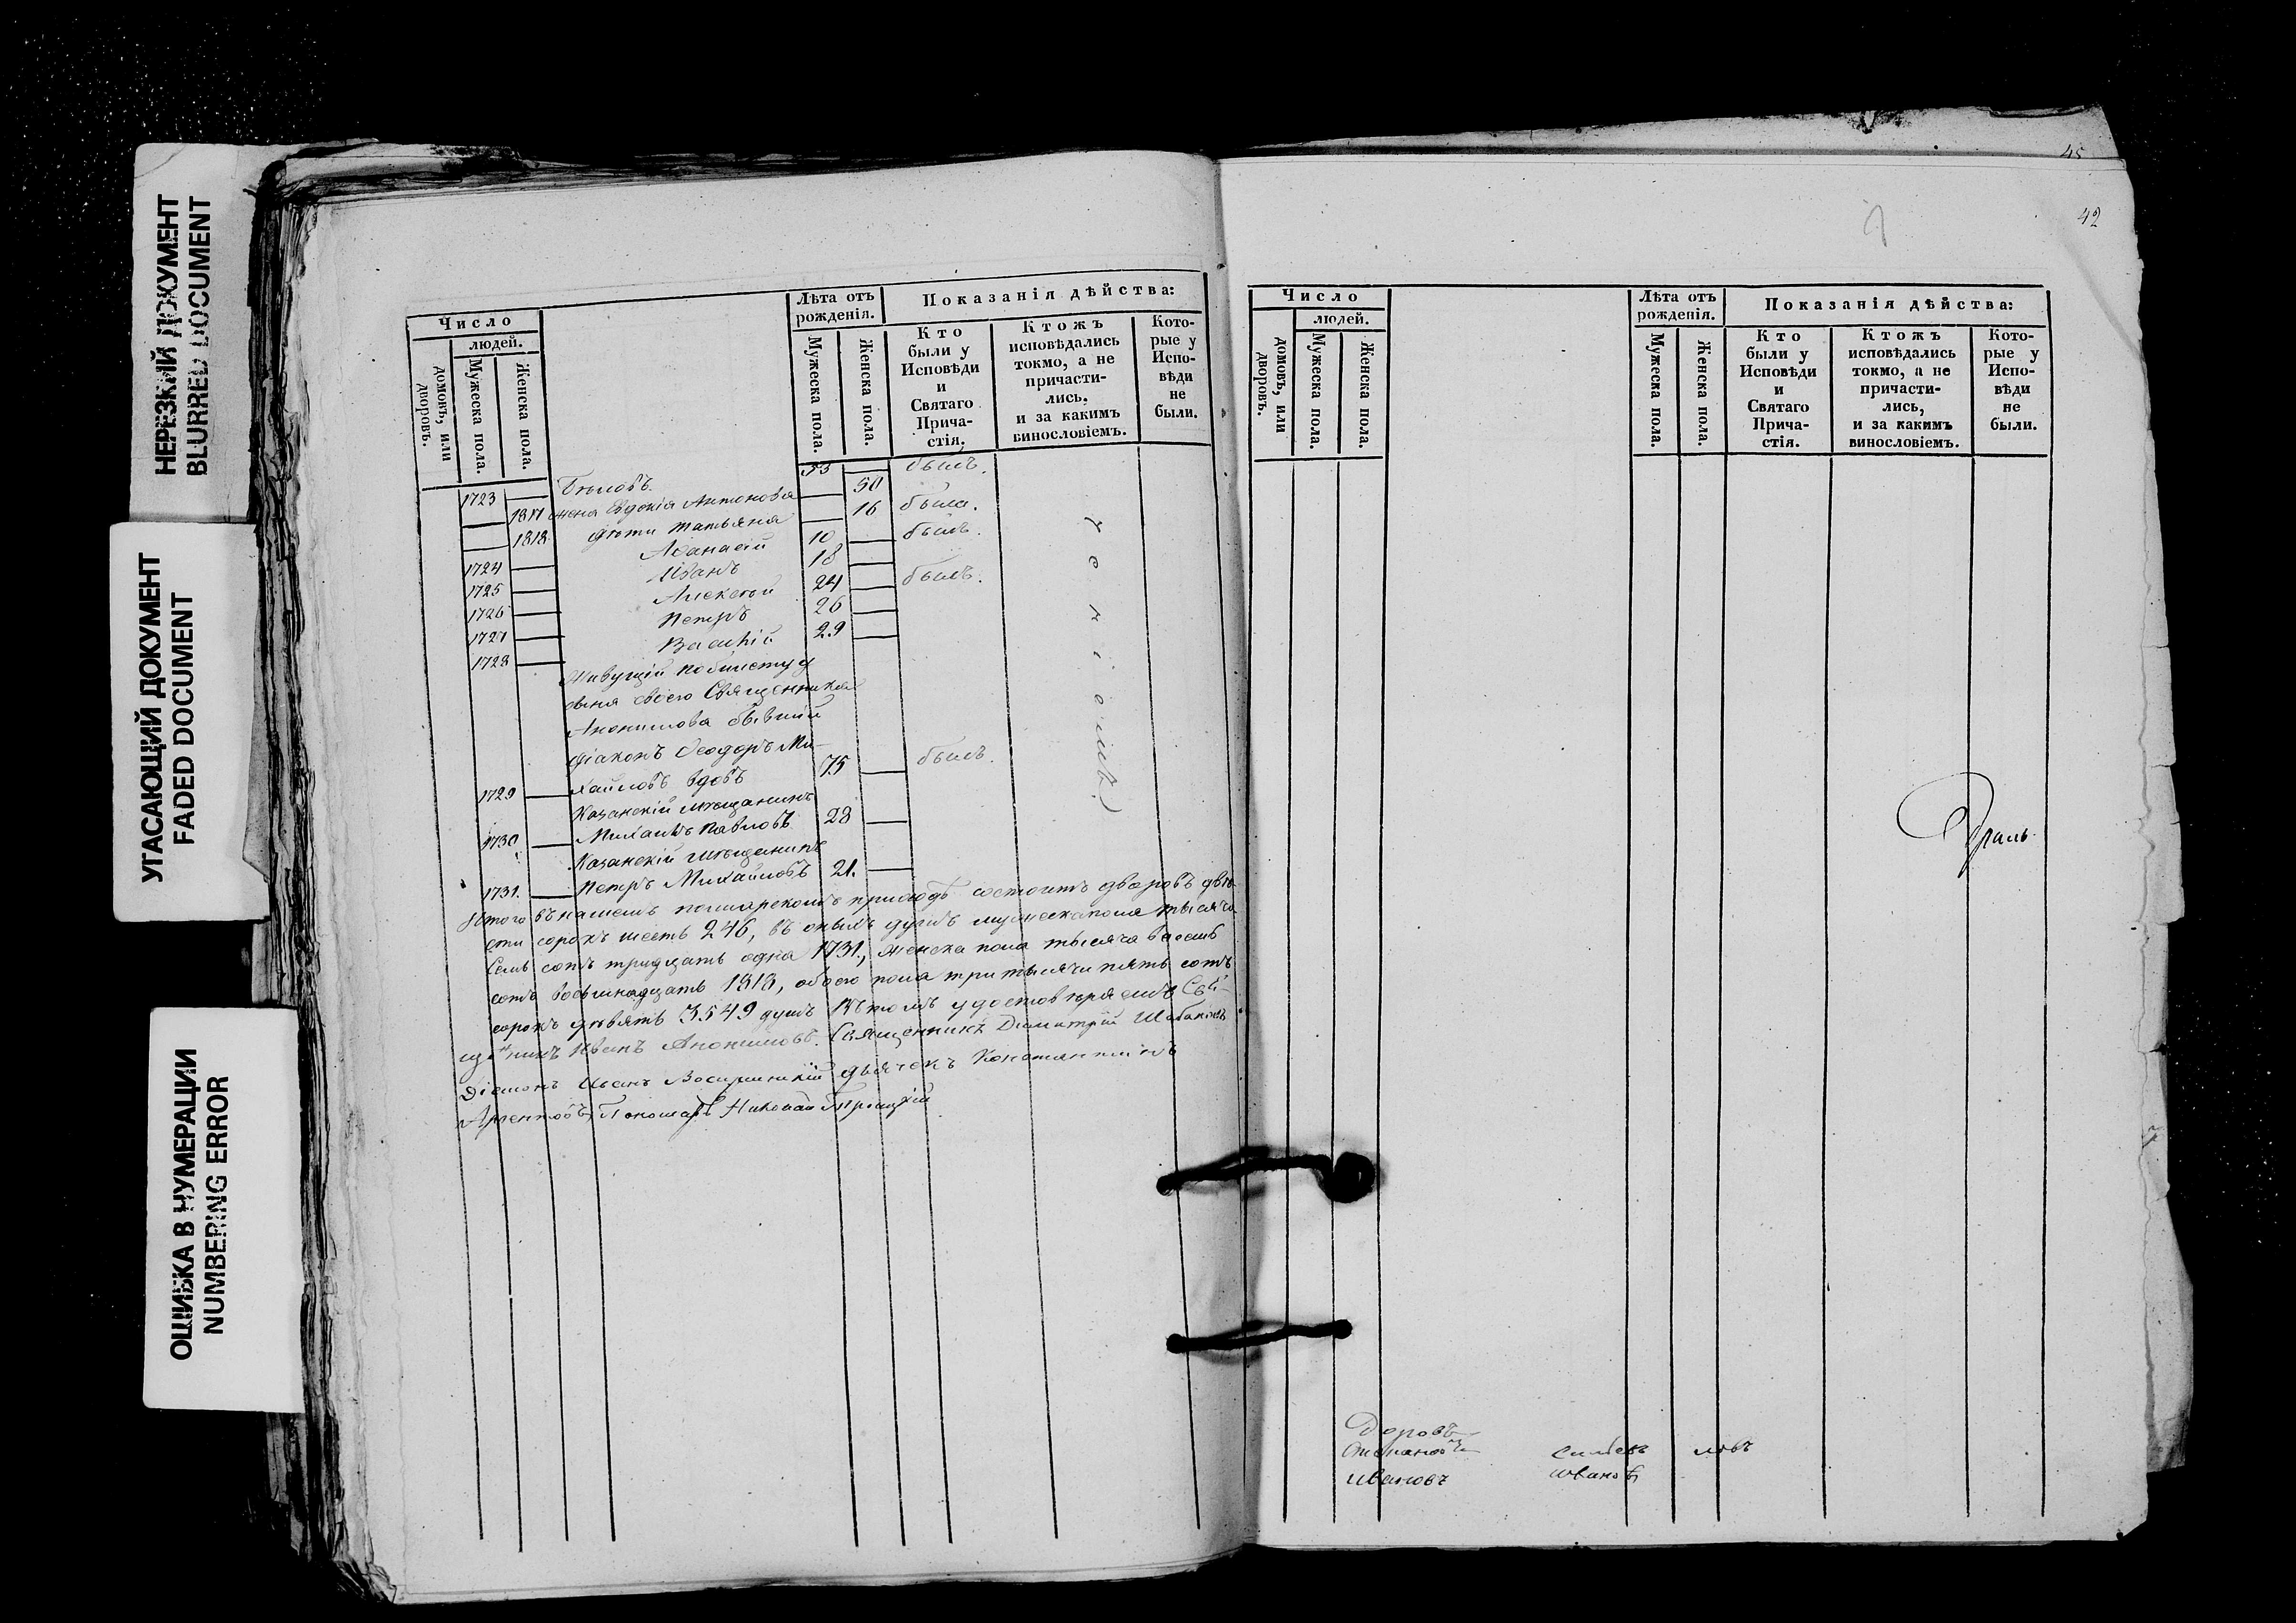 НЕРЕЗКИЙ ДОКУМЕНТ
BLURRED DOCUMENT
УГАСАЮЩИЙ ДОКУМЕНТ
FADED DOCUMENT
ОШИБКА В НУМЕРАЦИИ
NUMBERING ERROR
Число
людей.
домовъ, или дворовъ.
Мужеска пола.
Женска пола.
Лѣта отъ рожденія.
Мужеска пола.
Женска пола.
Показанія дѣйства:
Кто были у Исповѣди и Святаго Прича-стія.
Ктожъ исповѣдались токмо, а не причасти-лись, и за какимъ винословіемъ.
Кото-рые у Испо-вѣди не были.
1723 Бѣловъ 53 былъ.
1817 жена Евдокія Антонова 50 была.
1818 дѣти Татьяна 16 былъ.
1724 Афанасій 10
1725 Иванъ 18 былъ.
1726 Алексѣй 24
1727 Петръ 26
1728 Василій 29
Живущій по билету у
сына своего Священника
Анонимова бывшій
діаконъ Феодоръ Ми-
1729 хайловъ вдовъ 75 былъ.
Казанскій мѣщанинъ
1730 Михаилъ Павловъ 28
Казанскій мѣщанинъ
1731. Петръ Михайловъ 21.
Итого въ нашемъ приходѣ состоитъ дворовъ двѣ-
сти сорокъ шесть 246, въ оныхъ душъ мужеска пола тысяча
семь сотъ тридцать одна 1731., женска пола тысяча восемь
сотъ восьмнадцать 1818, обоего пола три тысячи пять сотъ
сорокъ девять 3549 душъ Въ томъ удостовѣряемъ Свя-
щенникъ Иванъ Анонимовъ. Священникъ Димитрій
Діаконъ Иванъ дьячекъ Константинъ
Пономарь Николай Троицкій
45
42
Число
людей.
домовъ, или дворовъ.
Мужеска пола.
Женска пола.
Лѣта отъ рожденія.
Мужеска пола.
Женска пола.
Показанія дѣйства:
Кто были у Исповѣди и Святаго Прича-стія.
Ктожъ исповѣдались токмо, а не причасти-лись, и за какимъ винословіемъ.
Кото-рые у Испо-вѣди не были.
Ивановъ Ивановъ